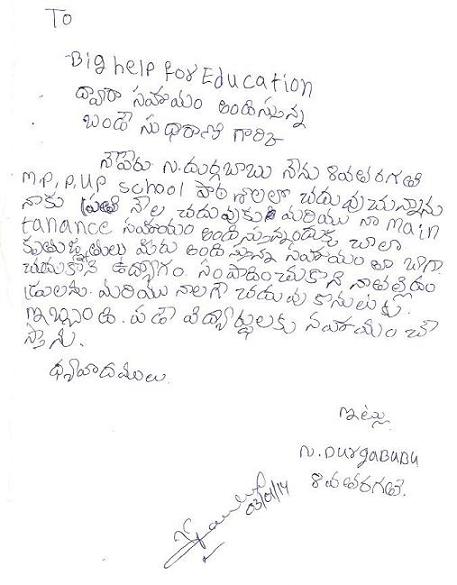 To
Big help for Education
ద్వారా సహాయం అందిస్తున్న
బండి సుధారాణి గారికి
నాపేరు N.దుర్గబాబు నేను 8వతరగతి
M.P.P.UP school పాఠశాలలో చదువుచున్నాను
నాకు ప్రతి నెల చదువుకు మరియు నా main
tanance సహాయం అందిస్తున్నందుకు చాలా
కృతజ్ఞతలు మీరు అందిస్తున్న సహాయం తో బాగా
చదుకొని ఉద్యోగం సంపాదించుకొని నాతల్లిదం
డ్రులను. మరియు నాలాగే చదువు కొనుటకు.
ఇబ్బంది. పడే విద్యార్థులకు సహాయం చే
స్తాను.
ధన్యవాదములు.
ఇట్లు.
N.DURGABABU
8వతరగతి.
03/01/14